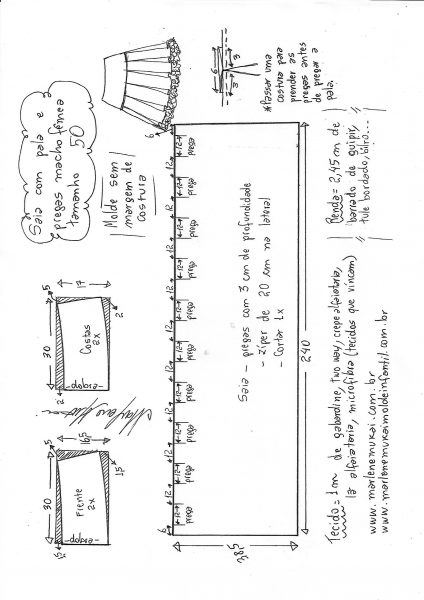 Saia com pala e
pregas macho fêmea
tamanho 50
Molde sem
margem de
costura
6
3
3
*Passar uma
costura para
prender as
pregas antes
de pregar a
pala.
30
5
17
2
2
Costas
2x
-dobra-
30
5
16,5
1,5
1,5
Frente
2x
-dobra-
6
12
12
12
12
12
12
12
12
12
6
←12→
prega
←12→
prega
←12→
prega
←12→
prega
←12→
prega
←12→
prega
←12→
prega
←12→
prega
←12→
prega
←12→
prega
Saia - pregas com 3 cm de profundidade
- zíper de 20 cm na lateral
- Cortar 1x
240
Renda = 2,45 m de
barrado de guipir,
tule bordado, etc...
Tecido = 1 m de gabardine, two way, crepe alfaiataria,
lã alfaiataria, microfibra (tecidos que vincam)
www.marlenemukai.com.br
www.marlenemukaimoldeinfantil.com.br